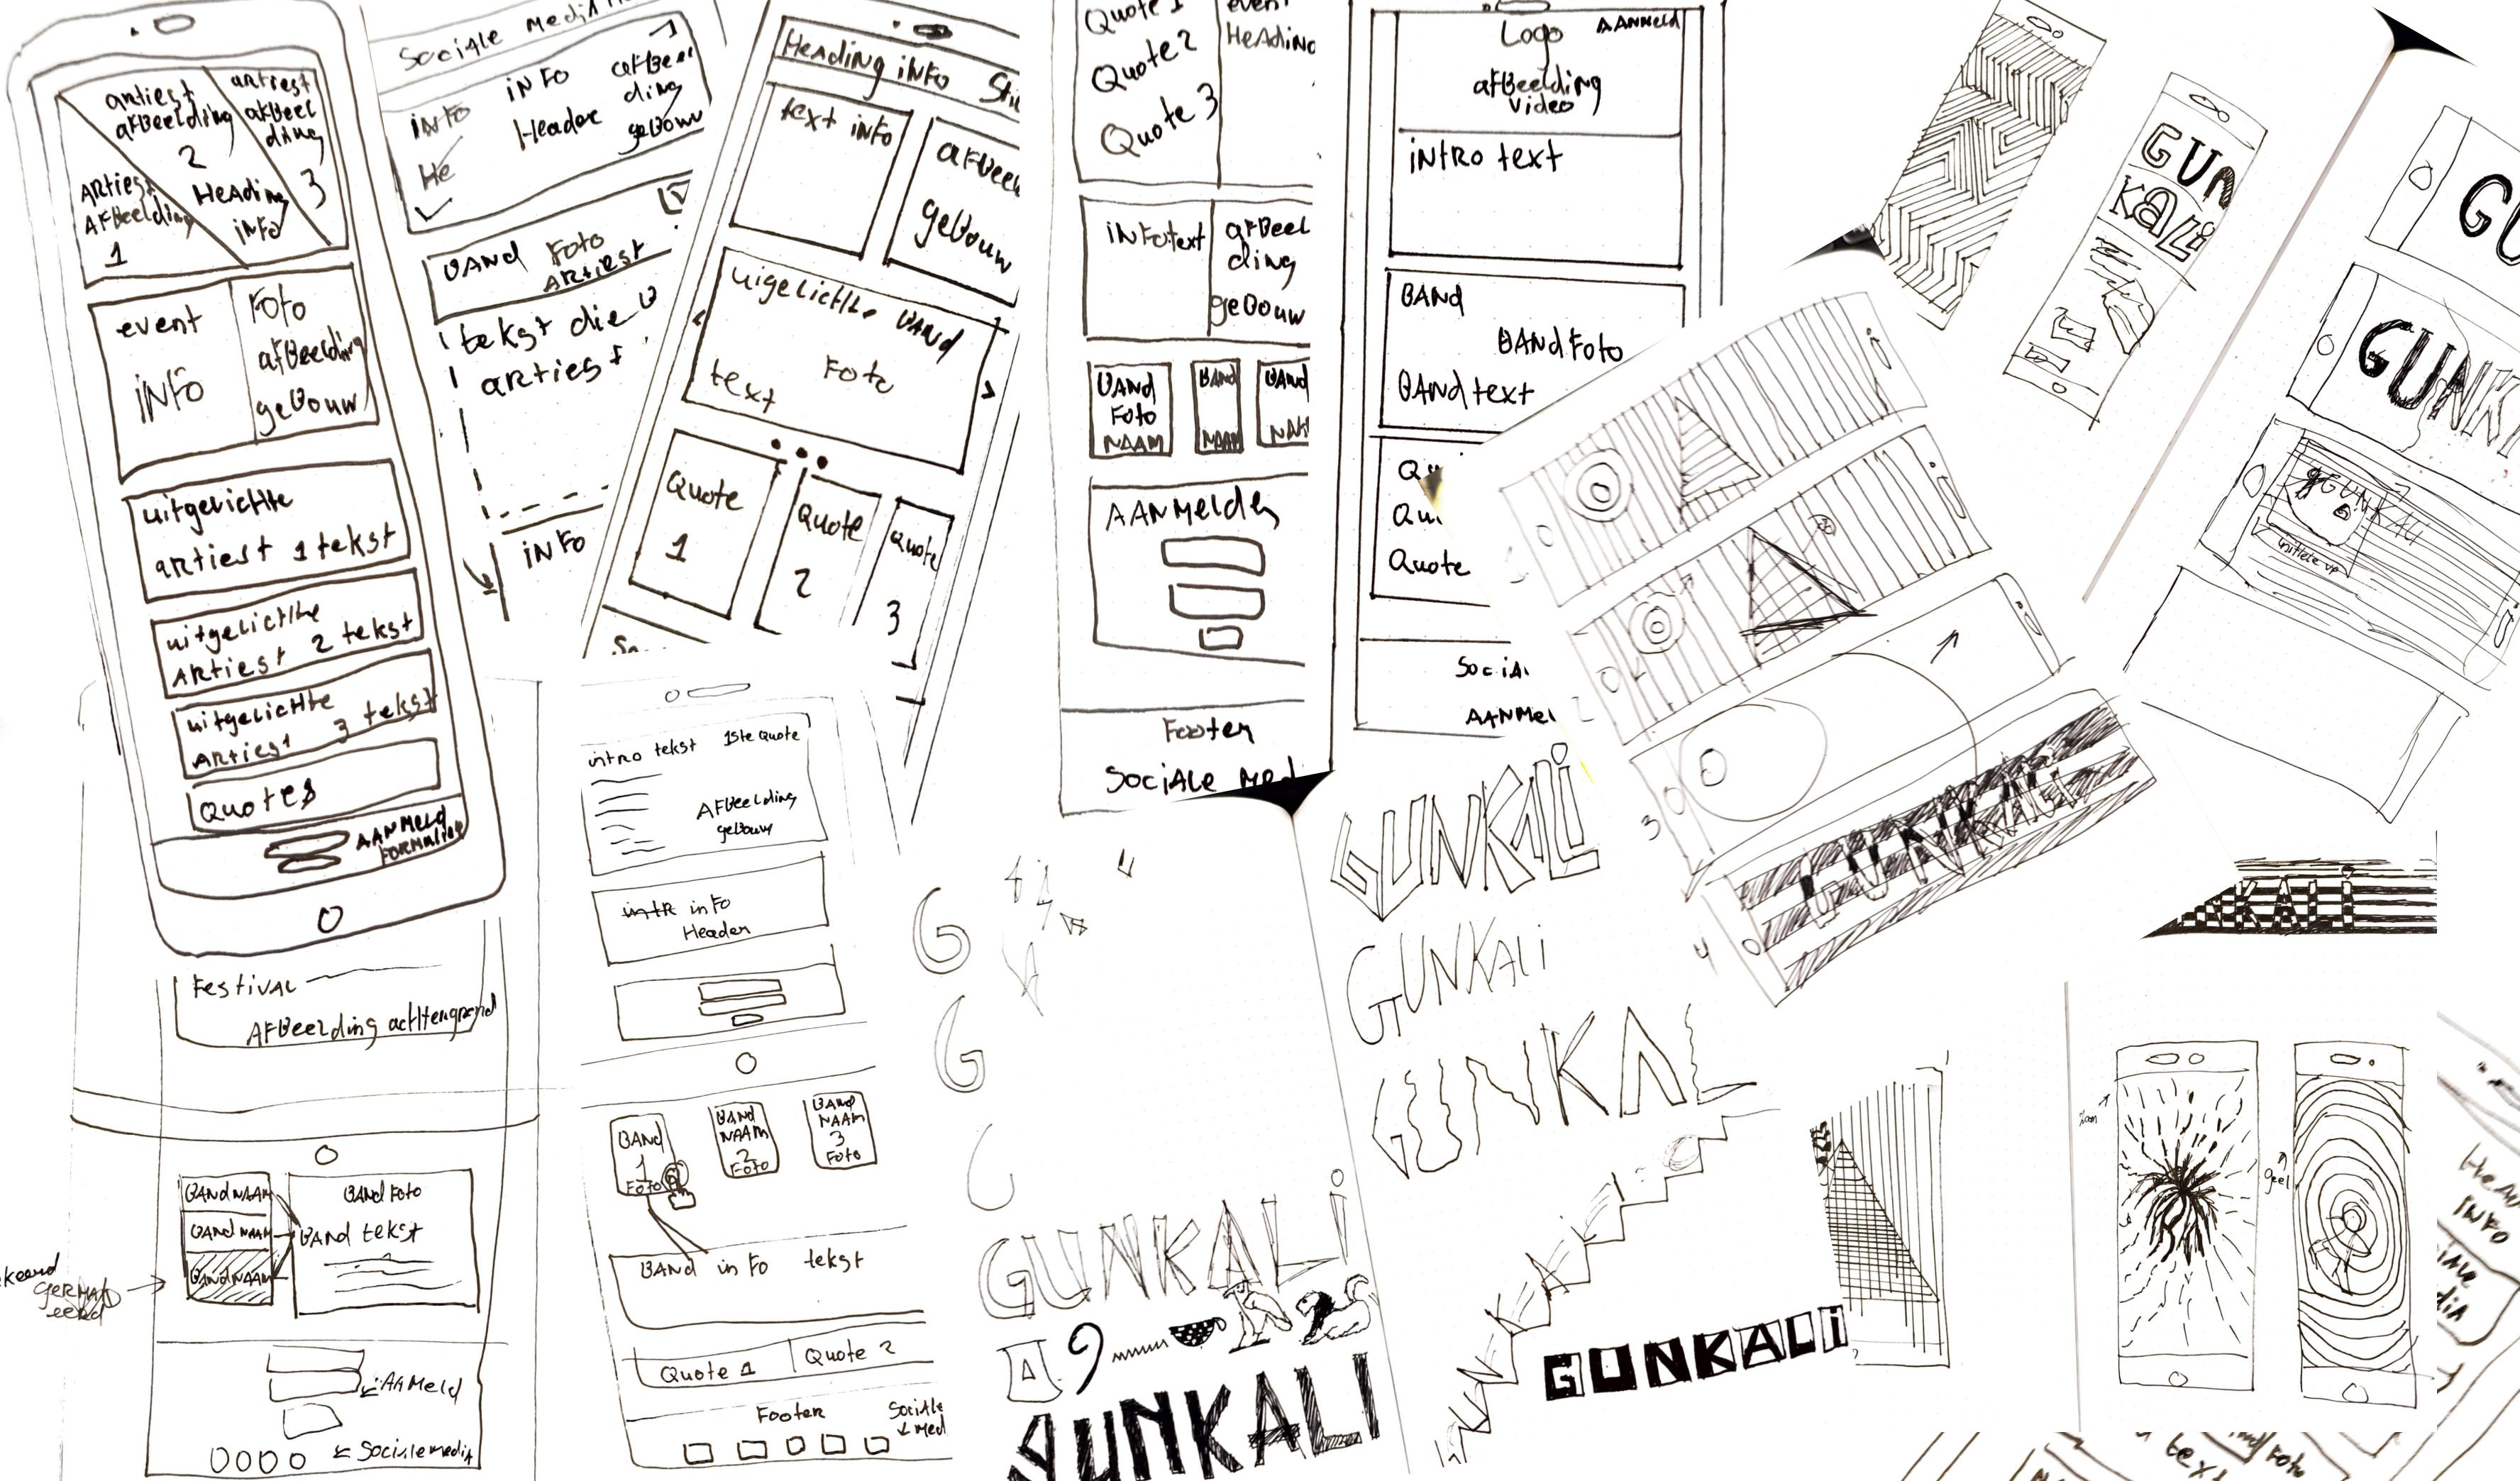 artiest
afbeelding
2
artiest
afbeel
ding
3
Artiest
Afbeelding
1
Heading
info
event
info
Foto
afbeelding
gebouw
uitgelichte
artiest 1 tekst
uitgelichte
Artiest 2 tekst
uitgelichte
Artiest 3 tekst
Quotes
AANMeld
FORMulier
Festival
Afbeelding achtergrond
BANd NAAM
BANd NAAM
BANd NAAM
BANd Foto
BANd tekst
AAMeld
Sociale media
Sociale Media
info
He
info
Header
afbeel
ding
gebouw
BANd Foto
Artiest
tekst die
artiest
info
Heading info
text info
afbeel
gebouw
uigelichte BANd
Foto
text
Quote
1
Quote
2
Quote
3
intro tekst
1ste Quote
Afbeelding
gebouw
info
Header
BANd
1
Foto
BANd
NAAM
2
Foto
BANd
NAAM
3
Foto
BANd info tekst
Quote 1
Quote 2
Footer
Sociale
Med
Quote 1
Quote 2
Quote 3
event
Heading
info text
afbeel
ding
gebouw
BANd
Foto
NAAM
BANd
NAAM
BANd
AANMelden
Footer
Sociale Med
Logo
AANMeld
afbeelding
video
intro text
BANd
BANd Foto
BANd text
Quote
AANMel
GUN
KALi
GU
GUNK
GUNKALI
1
2
3
4
GUNKALI
KALI
GUNKALI
GUNKALI
GUNKAL
G
G
GUNKALI
GUNKALI
GUNKALI
geel
info
text
Foto